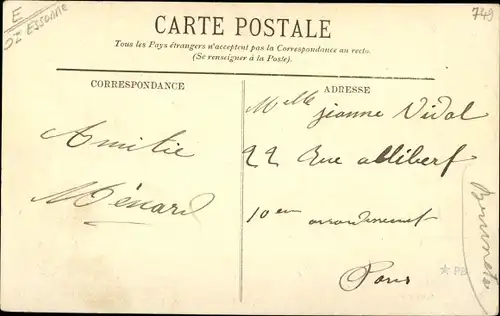 E
91 ESSONNE
749
CARTE POSTALE
Tous les Pays étrangers n'acceptent pas la Correspondance au recto.
(Se renseigner à la Poste).
CORRESPONDANCE
Amitie
Ménard
ADRESSE
Melle jeanne Vidal
22 Rue allibert
10em arrondissement
Paris